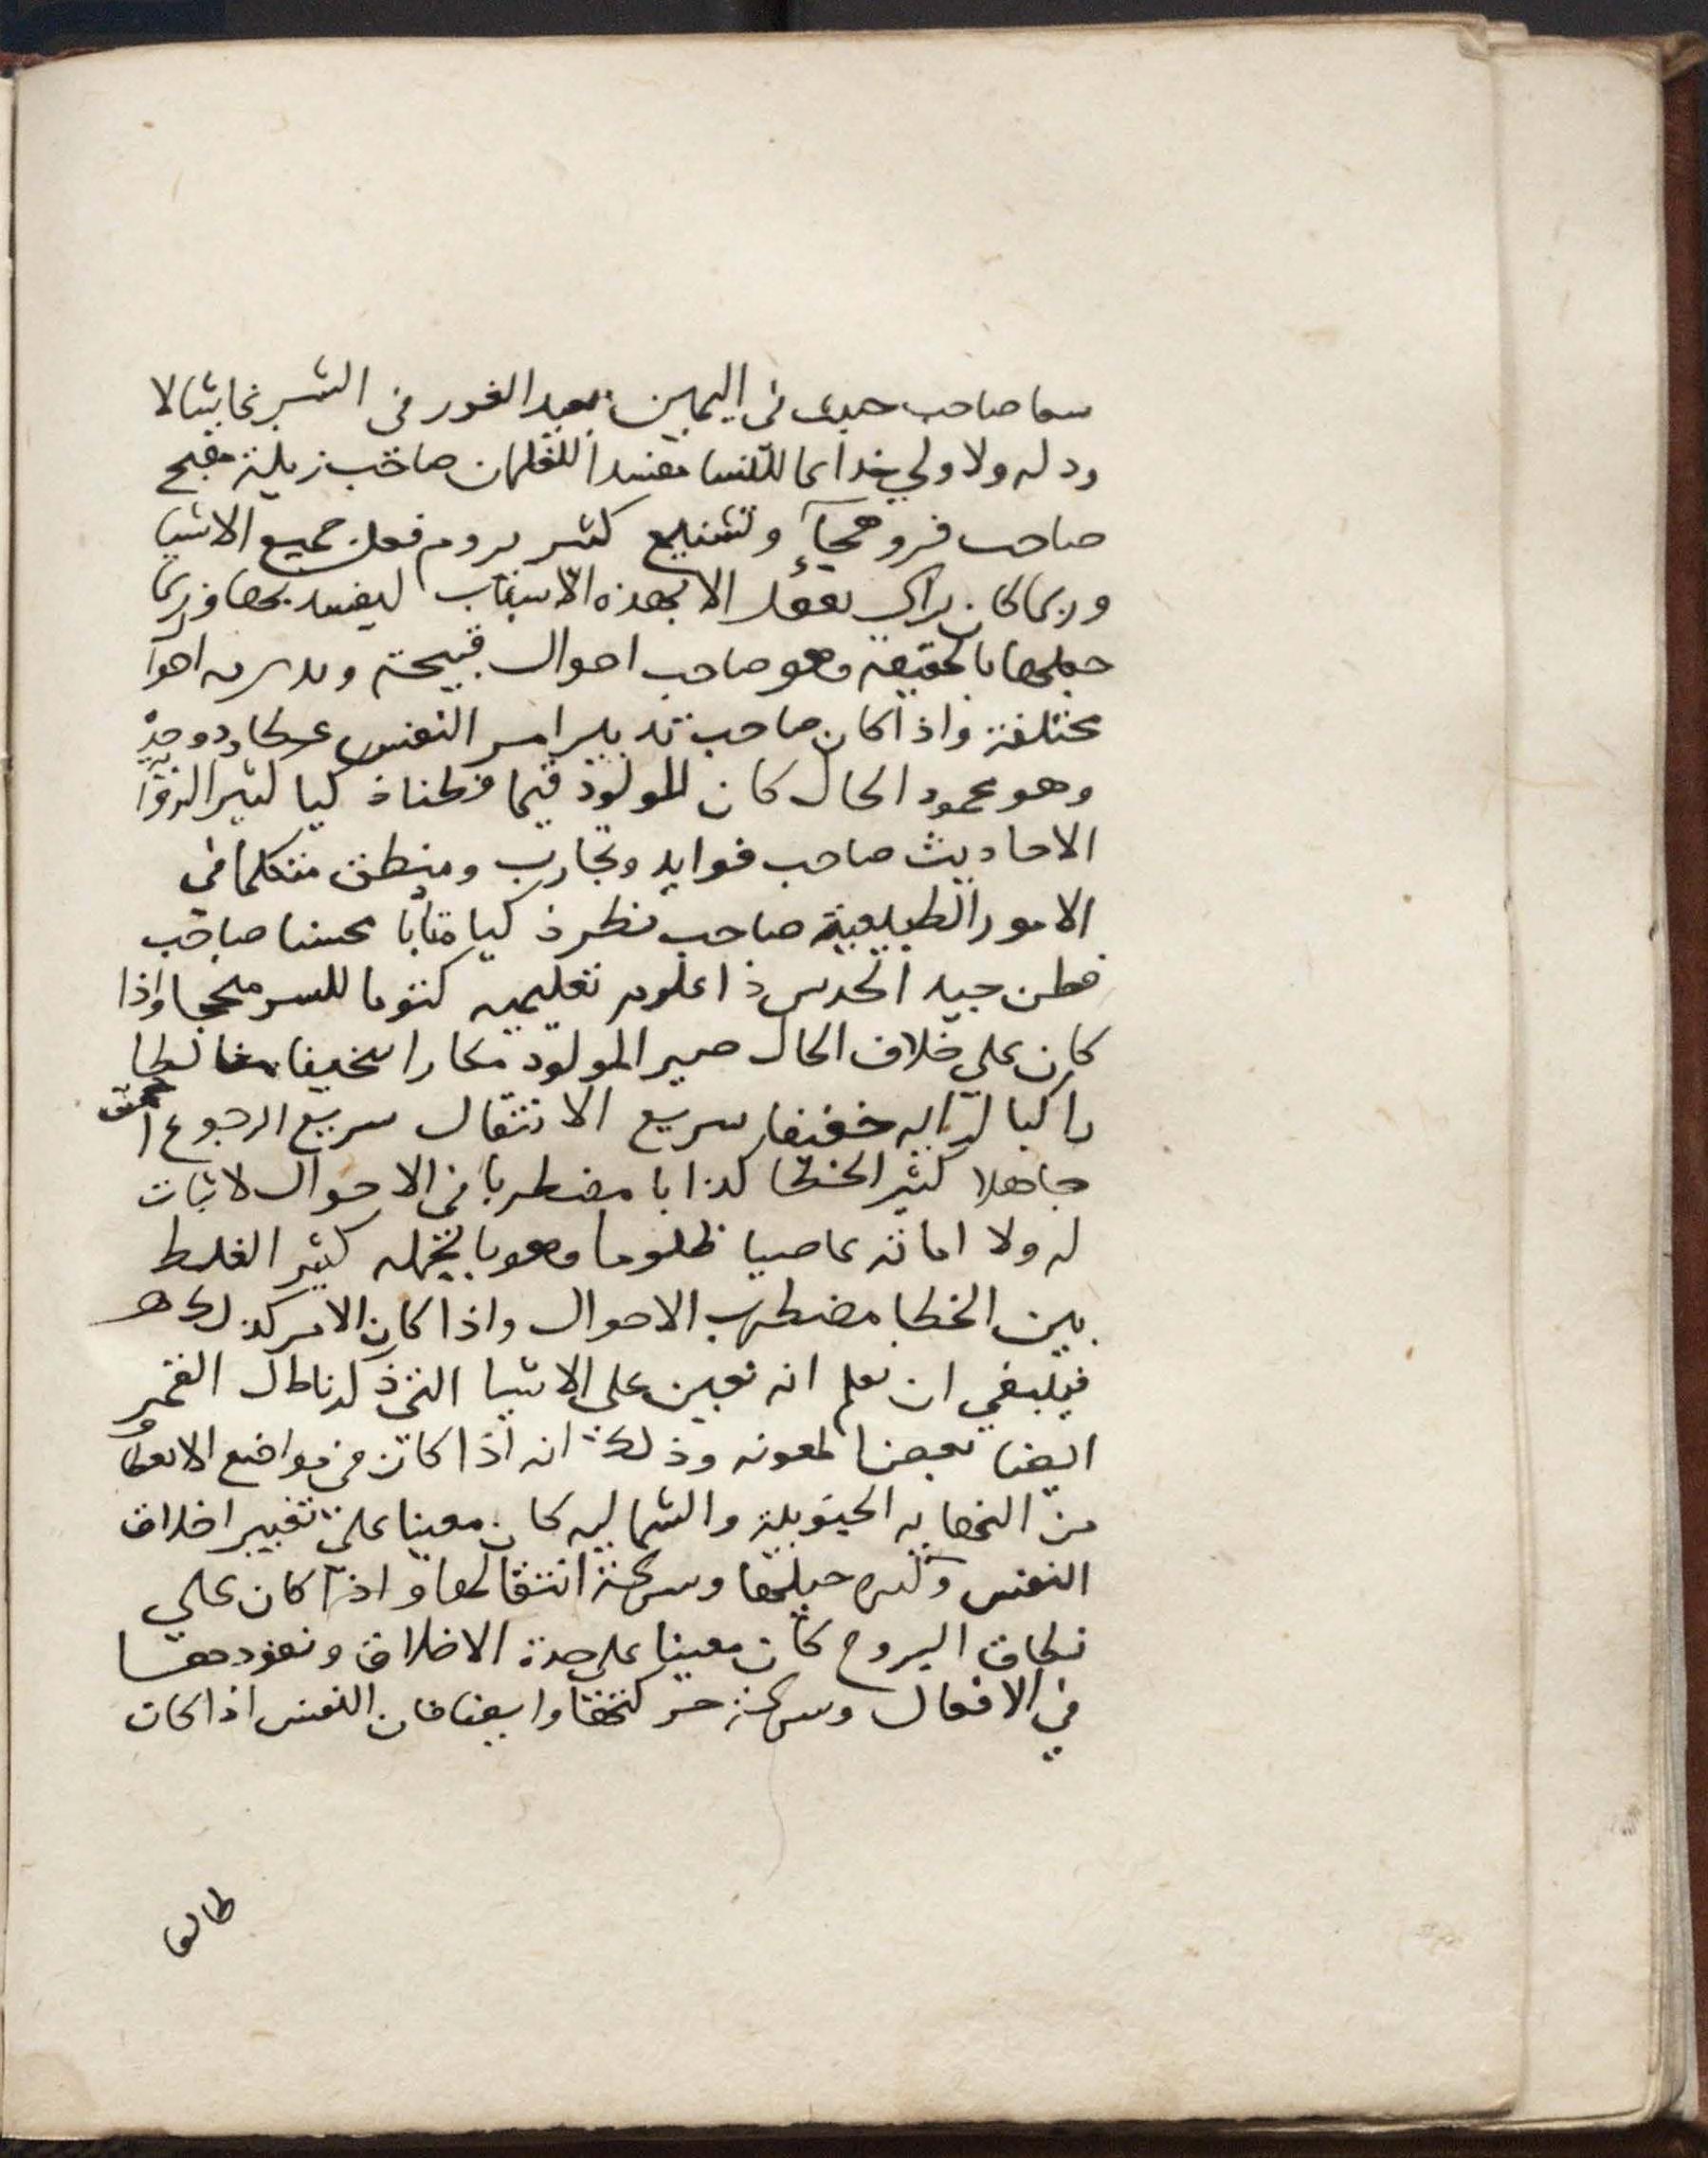 سما صاحب حىى في اليمين بعيد الغور في الشر نحابثا لا
ود له ولا ولي خداعا للنسا مفسدا للغلمان صاحب زيلة مقبح
صاحب فرو هجآء وتشنيع كثير يروم فعل جميع الاشيا
وربما كان بعقل الا بهذه الاسباب ليفسد بها وربما
جعلها بالحقيقة وهو صاحب احوال قبيحة اهوا
مختلفة واذا كان صاحب تدبير امر النفس عطارد وحده
وهو محمود الحال كان المولود فيما فطنا ذكيا كثير الرؤا
الاحاديث صاحب فوايد وتجارب ومنطق متكلما في
الامور الطبيعية صاحب نظر ذكيا متأبا محسنا صاحب
فطن جيد الحدس ذا علوم تعليميه كتوما للسر منجحا واذا
كان علي خلاف الحال صير المولود مكارا سخيفا مغالطا
راكبا لرايه خفيفا سريع الانتقال سريع الرجوع احمق
جاهلا كثير الخطا كذابا مضطربا في الاحوال لا ثبات
له ولا امانه عاصيا ظلوما وهو بالجمله كثير الغلط
بين الخطا مضطرب الاحوال واذا كان الامر كذلك
فينبغي ان نعلم انه تعين على الاشيا التي ذكرنا حال القمر
ايضا بعض المعونه وذلك انه اذا كان في مواضع الانعطا
من النهايه الجنوبية والشماليه كان معينا على تغيير اخلاق
النفس وكثره حيلها وسرعة انتقالها واذا كان علي
نطاق البروج كان معينا على حدة الاخلاق ونفودها
في الافعال وسرعة حركتها وايضا فان النفس اذا كان
طالعا